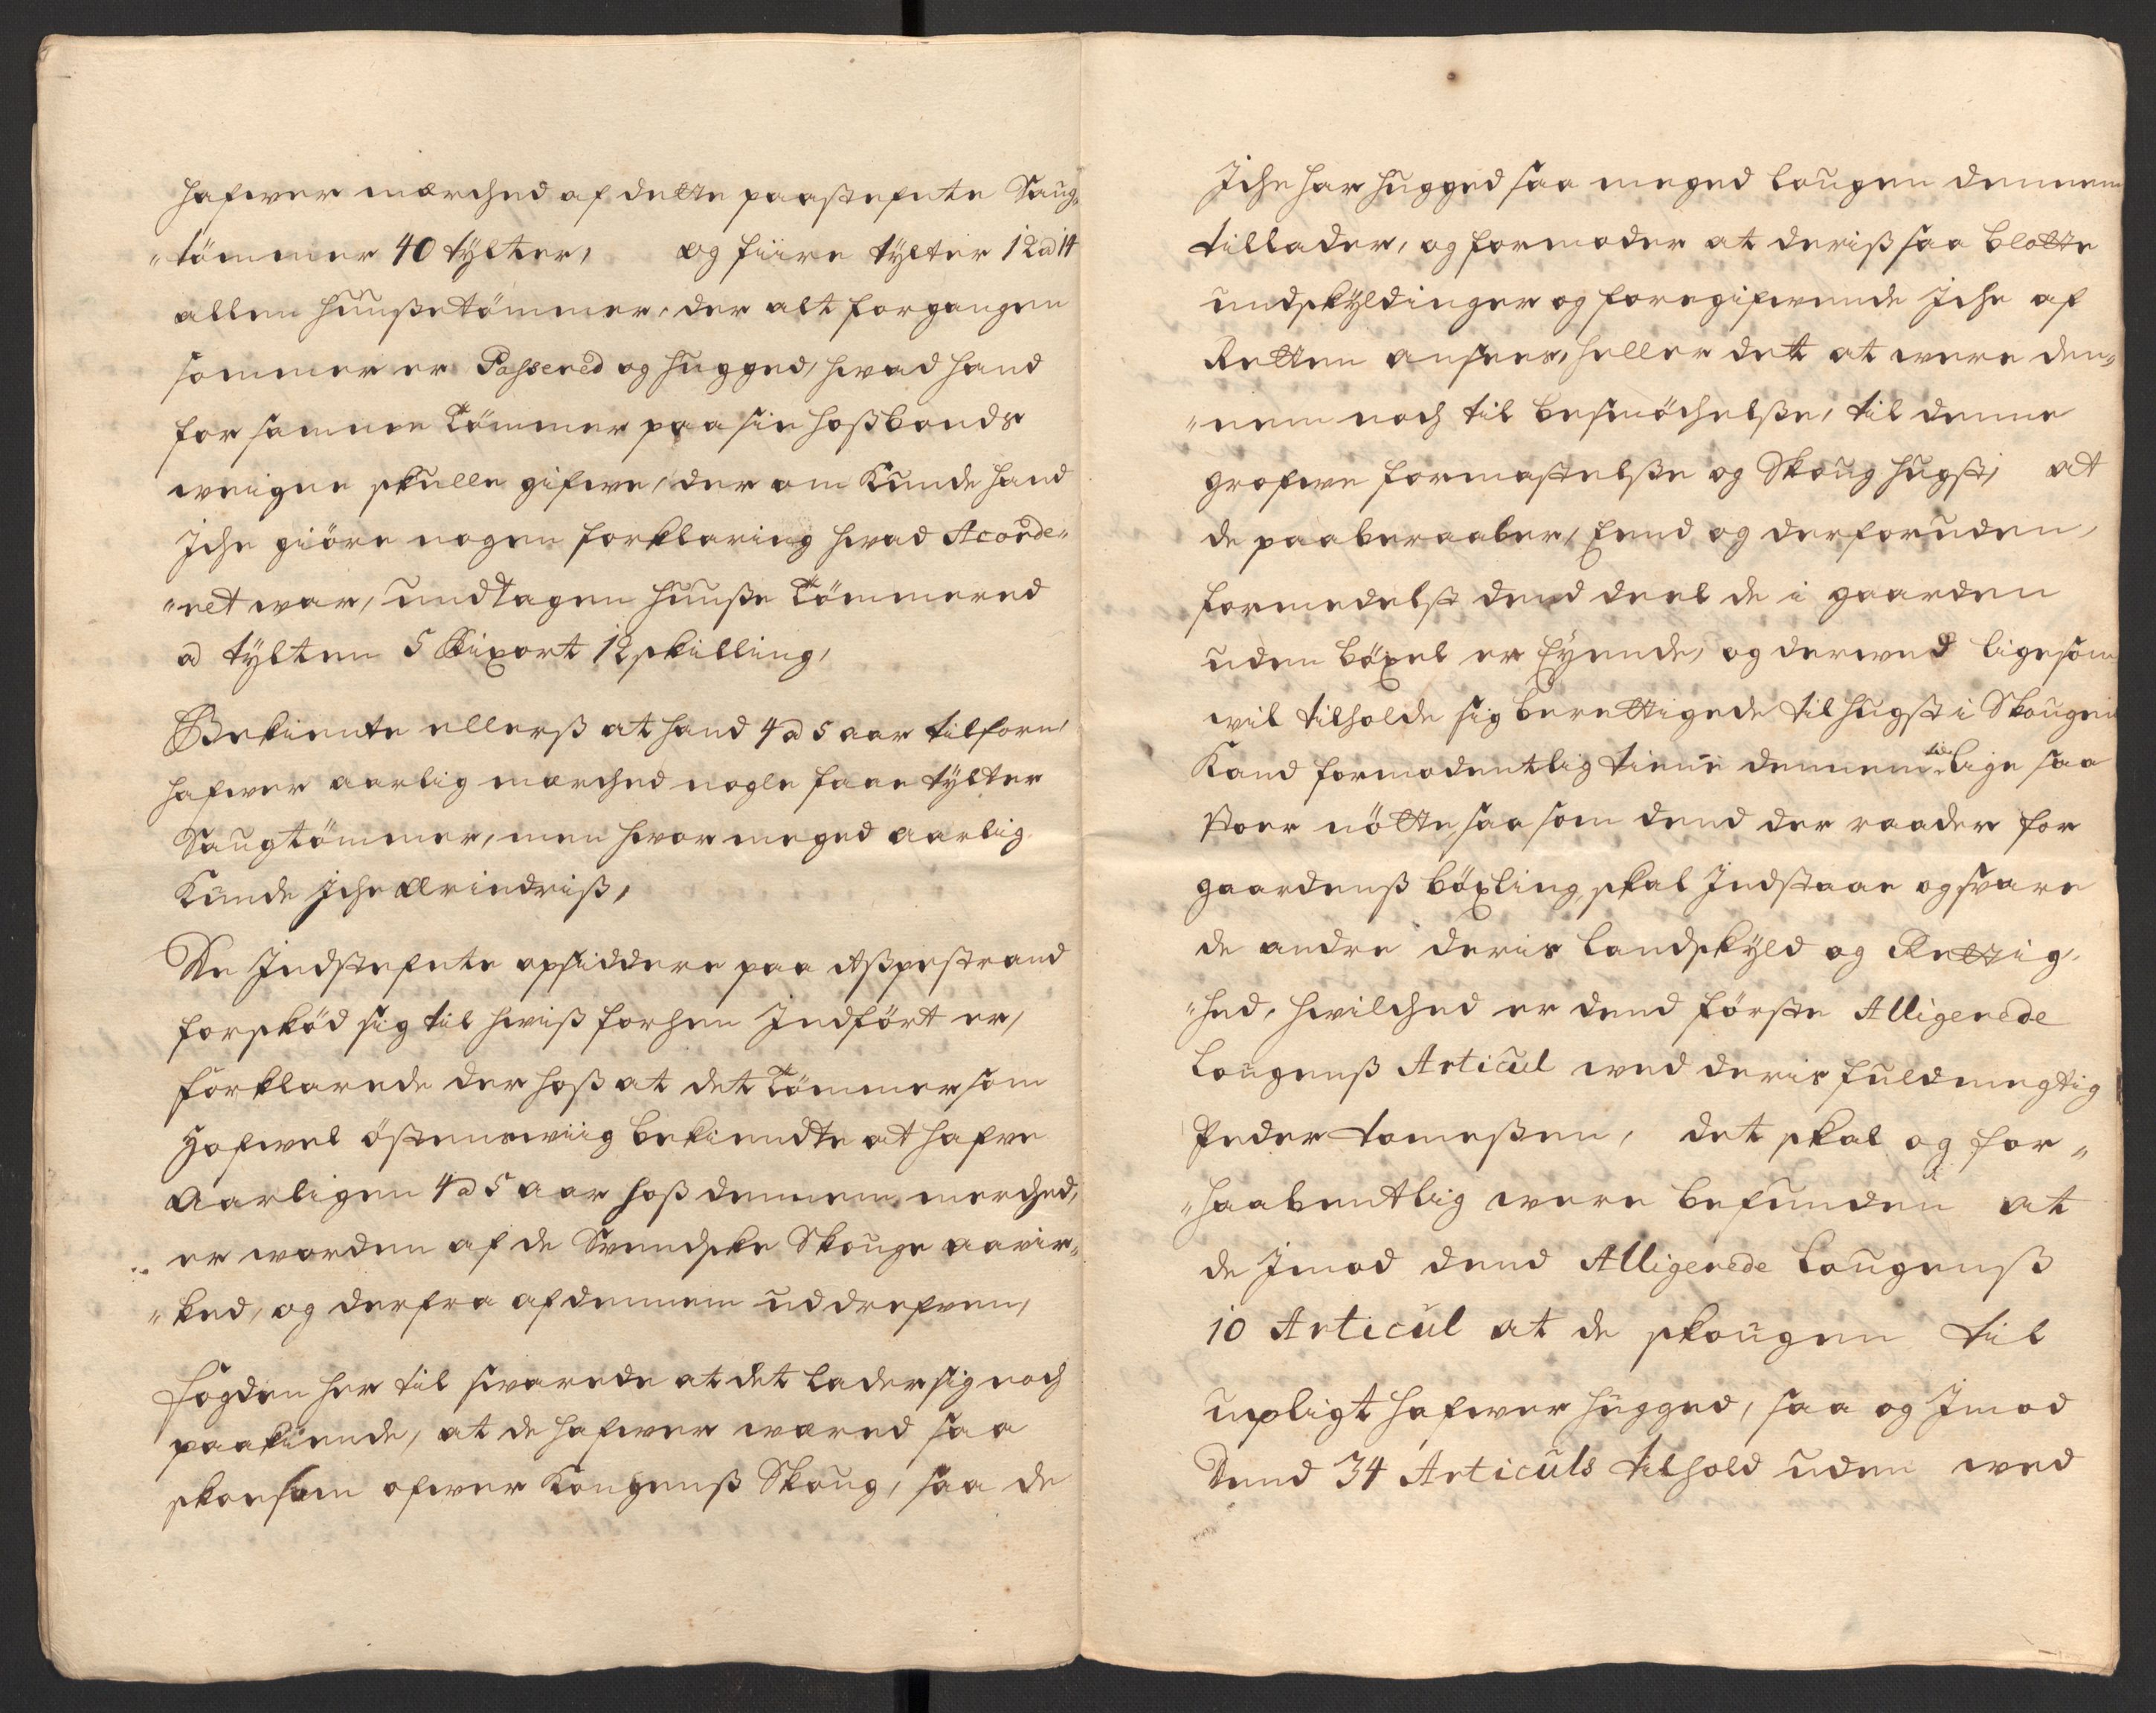 hafwer mærched af dette paastefnte Saug-
"tömmer 40 tÿlter, og fiire tÿlter 12 a 14
allen huußetömmer, der alt forgangen
sommer er Passered og hugged, hwad hand
for samme Tömmer paa sin hoßbonds
weigne skulle gifwe, der om Kunde hand
Iche giöre nogen forklaring hwad Acorde-
"ret war, undtagen huuße Tömmered
a tÿlten 5 Rixort 12 skilling,
Bekiente ellerß at hand 4 a 5 aar tilforn,
hafwer aarlig mærched nogle faae tÿlter
Saugtömmer, men hwor meged aarlig
Kunde Iche Erindriß,
De Indstefnte opsiddere paa Aßpestrand
forskød sig til hwiß forhen Indført er,
forklarede der hoß at det Tömmer som
Hofwel östenswiig bekiendte at hafve
Aarligen 4 a 5 aar hoß dennem merched,
er worden af de Svendske Skouge aavir-
"ked, og derfra af dennem uddrefven,
Fogden her til swarede at det lader sig noch
paakiende, at de hafwer wæred saa
skonsom ofwer Kongenß Skoug, saa de
Iche har hugged saa meged lougen dennem
tillader, og formoder at deriß saa blotte
undskÿldinger og foregifwende Iche af
Retten ansees, heller det at were den-
"nem noch til besmöchelße, til denne
grofwe formastelße og Skoug hugst, at
de paaberaaber, Eend og derforuden,
formedelst dend deel de i gaarden
uden böxel er Eÿende, og derwed ligesom
wil tilholde sig berettigede til hugst i Skougen
Kand formodentlig tiene dennem til lige saa
stoer nötte saa som dend der raader for
gaardenß böxling, skal Indstaae og svare
de andre deris landskÿld og Rettig-
"hed, hwilched er dend förste Alligerede
Lougenß Articul wed deris fuldmegtig
Peder tomeßen, det skal og for-
"haabentlig were befunden at
de Imod dend Alligerede Lougenß
10 Articul at de skougen til
upligt hafwer hugged, saa og Imod
Dend 34 Articuls tilhold uden wed